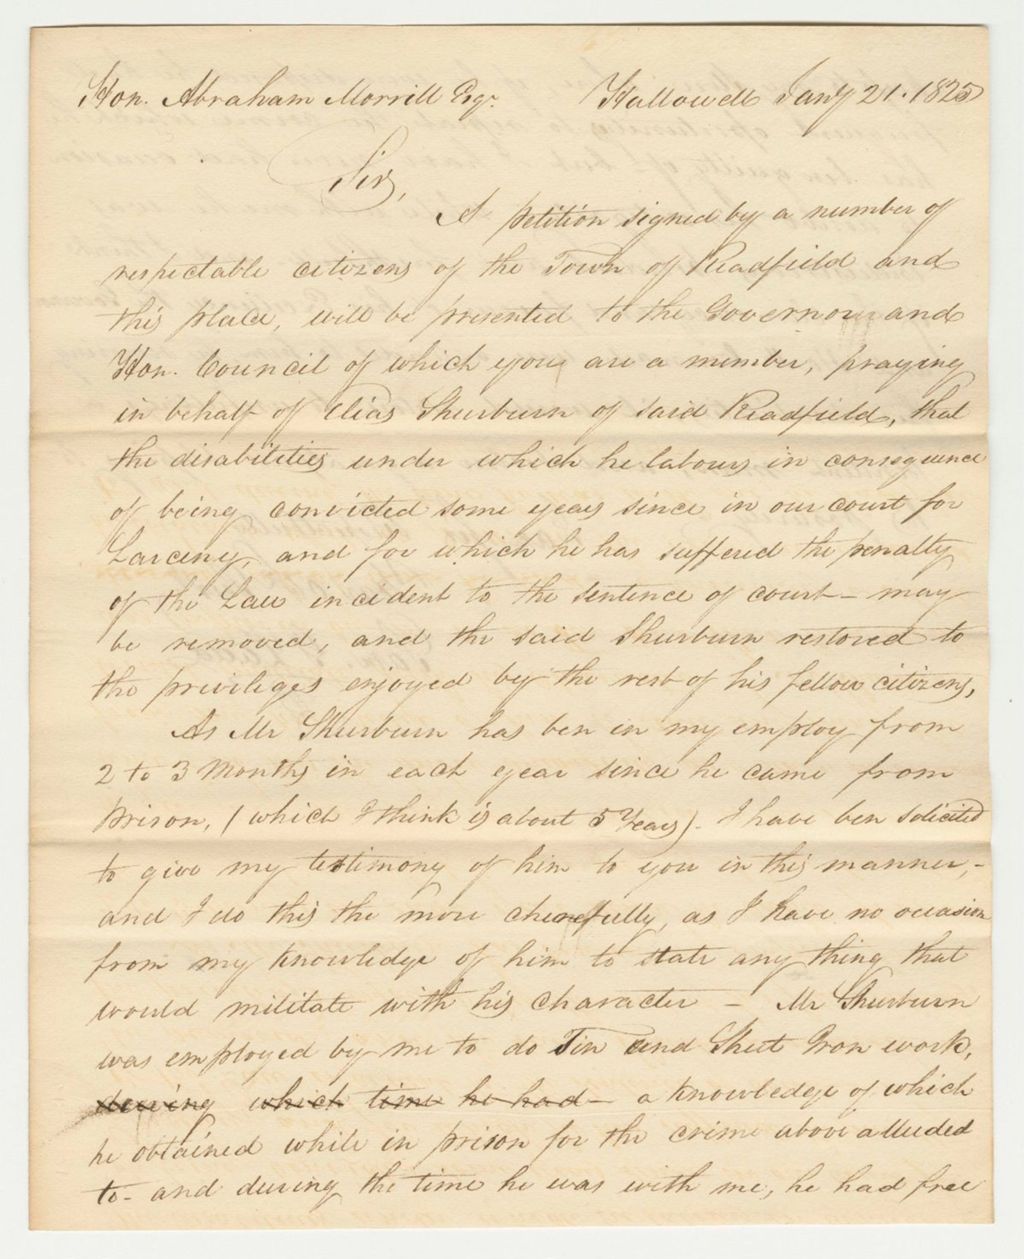 Hon. Abraham Morrill Esqr. Hallowell Jany 21. 1825
Sir,
A petition signed by a number of
respectable citizens of the Town of Readfield and
this place, will be presented to the Governor and
Hon. Council of which you are a member, praying
in behalf of Elias Shurburn of said Readfield, that
the disabilities under which he labours in consequence
of being convicted some years since in our court for
Larceny, and for which he has suffered the penalty
of the Law incident to the sentence of court - may
be removed, and the said Shurburn restored to
the privileges enjoyed by the rest of his fellow citizens,
As Mr Shurburn has ben in my employ from
2 to 3 Months in each year since he came from
prison, (which I think is about 5 Years). I have ben solicited
to give my testimony of him to you in this manner, -
and I do this the more cheerfully, as I have no occasion
from my knowledge of him to state any thing that
would militate with his character - Mr Shurburn
was employed by me to do Tin and Sheet Iron work,
during which time he had - a knowledge of which
he obtained while in prison for the crime above alluded
to - and during the time he was with me, he had free